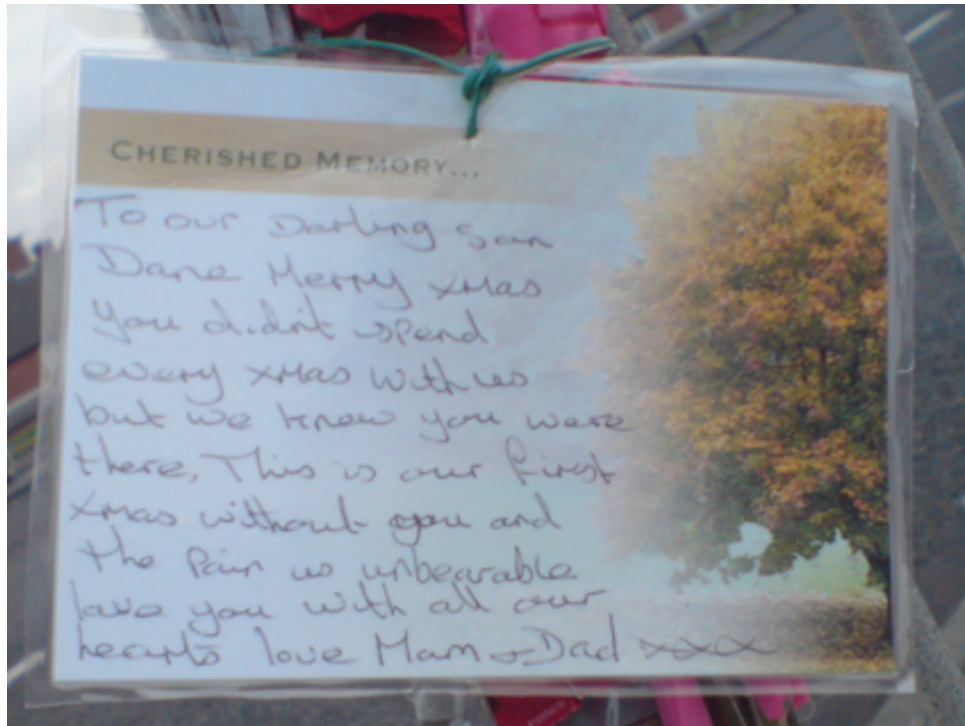 CHERISHED MEMORY...
To our Darling son
Dane Merry xmas
you didn't spend
every xmas with us
but we knew you were
there, This is our first
xmas without you and
the pain is unbearable
love you with all our
hearts love Mam & Dad xxx